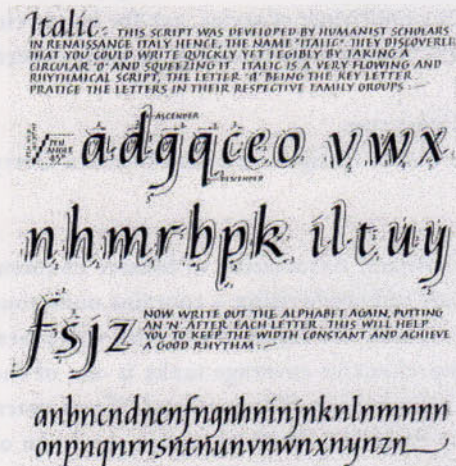 Italic: THIS SCRIPT WAS DEVELOPED BY HUMANIST SCHOLARS
IN RENAISSANCE ITALY HENCE, THE NAME "ITALIC". THEY DISCOVERED
THAT YOU COULD WRITE QUICKLY YET LEGIBLY BY TAKING A
CIRCULAR 'O' AND SQUEEZING IT. ITALIC IS A VERY FLOWING AND
RHYTHMICAL SCRIPT, THE LETTER 'a' BEING THE KEY LETTER
PRATICE THE LETTERS IN THEIR RESPECTIVE FAMILY GROUPS:
ASCENDER
PEN ANGLE 45°
a d g q c e o v w x
DESCENDER
n h m r b p k i l t u y
f s j z
NOW WRITE OUT THE ALPHABET AGAIN, PUTTING
AN 'N' AFTER EACH LETTER. THIS WILL HELP
YOU TO KEEP THE WIDTH CONSTANT AND ACHIEVE
A GOOD RHYTHM:
anbncndnenfngnhninjnknlnmnnn
onpnqnrnsntnunvnwnxnynzn